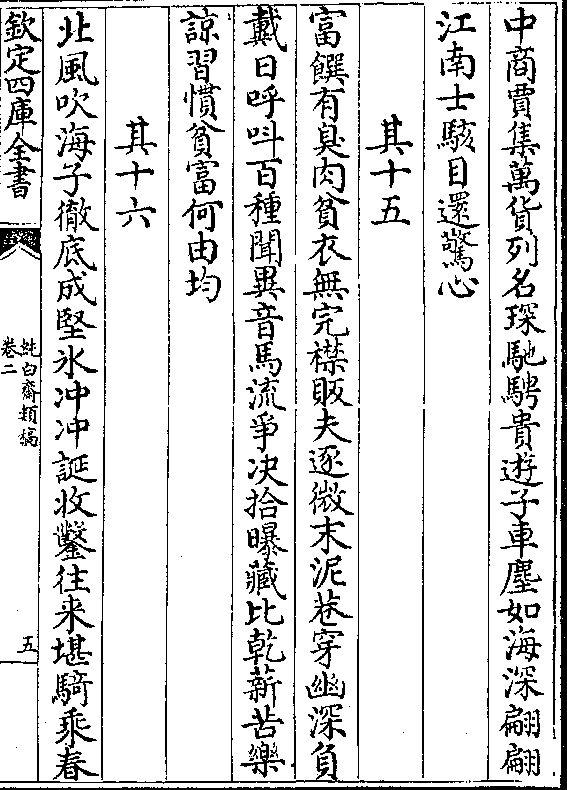 中商賈集萬貨列名琛馳騁貴遊子車塵如海深翩翩
江南士駭目還驚心
其十五
富饌有臭肉貧衣無完襟販夫逐微末泥巷穿幽深負
戴日呼叫百種聞異音馬流爭決拾曝藏比乾薪苦樂
諒習慣貧富何由均
其十六
北風吹海子徹底成堅氷冲冲誕收鑿往来堪騎乘春
欽定四庫全書
純白齋類稿
卷二
五